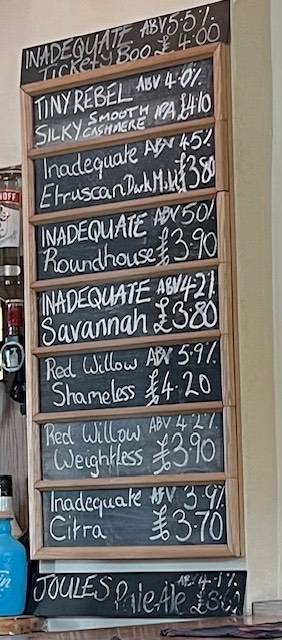 INADEQUATE ABV 5.5%
TicketyBoo £4.00
TINY REBEL ABV 4.0%
SILKY SMOOTH CASHMERE IPA £4.10
Inadequate ABV 4.5%
Etruscan Dark Mild £3.80
INADEQUATE ABV 5.0%
Roundhouse £3.90
INADEQUATE ABV 4.2%
Savannah £3.80
Red Willow ABV 5.9%
Shameless £4.20
Red Willow ABV 4.2%
Weightless £3.90
Inadequate ABV 3.9%
Citra £3.70
JOULES ABV 4.1%
Pale Ale